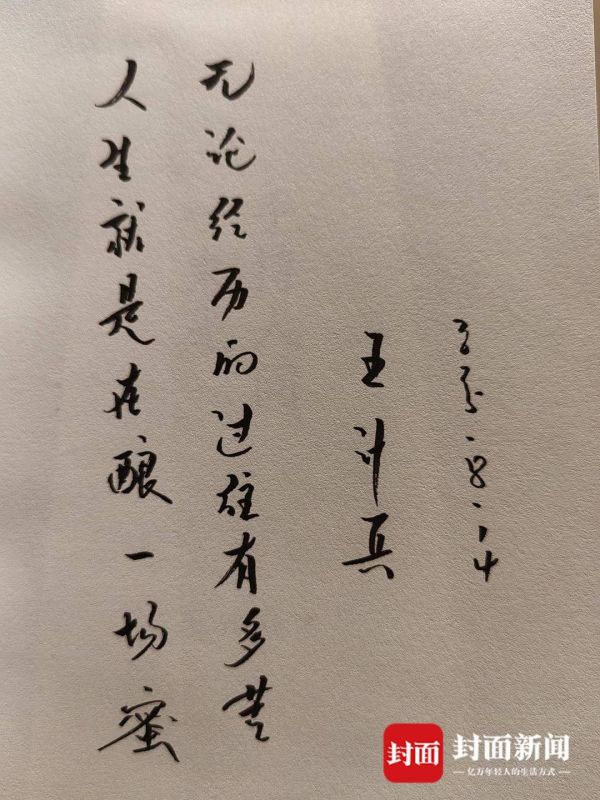 人生就是在酿一场蜜
无论经历的过往有多苦
王计兵
8.14
封面 封面新闻
亿万年轻人的生活方式